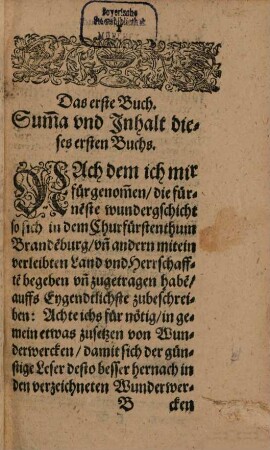 Bayerische
Staatsbibliothek
Das erste Buch.
Sum̃a vnd Inhalt die-
ses ersten Buchs.
NAch dem ich mir
fürgenom̃en / die für-
nẽste wundergschicht
so sich in dem Churfürstenthum
Brandẽburg / vñ andern mitein
verleibten Land vnd Herrschaff-
tẽ begeben vñ zugetragen habẽ /
auffs Eygendtlichste zubeschrei-
ben: Achte ichs für nötig / in ge-
mein etwas zusetzen von Wun-
derwercken / damit sich der gün-
stige Leser desto besser hernach in
den verzeichneten Wunderwer-
B cken